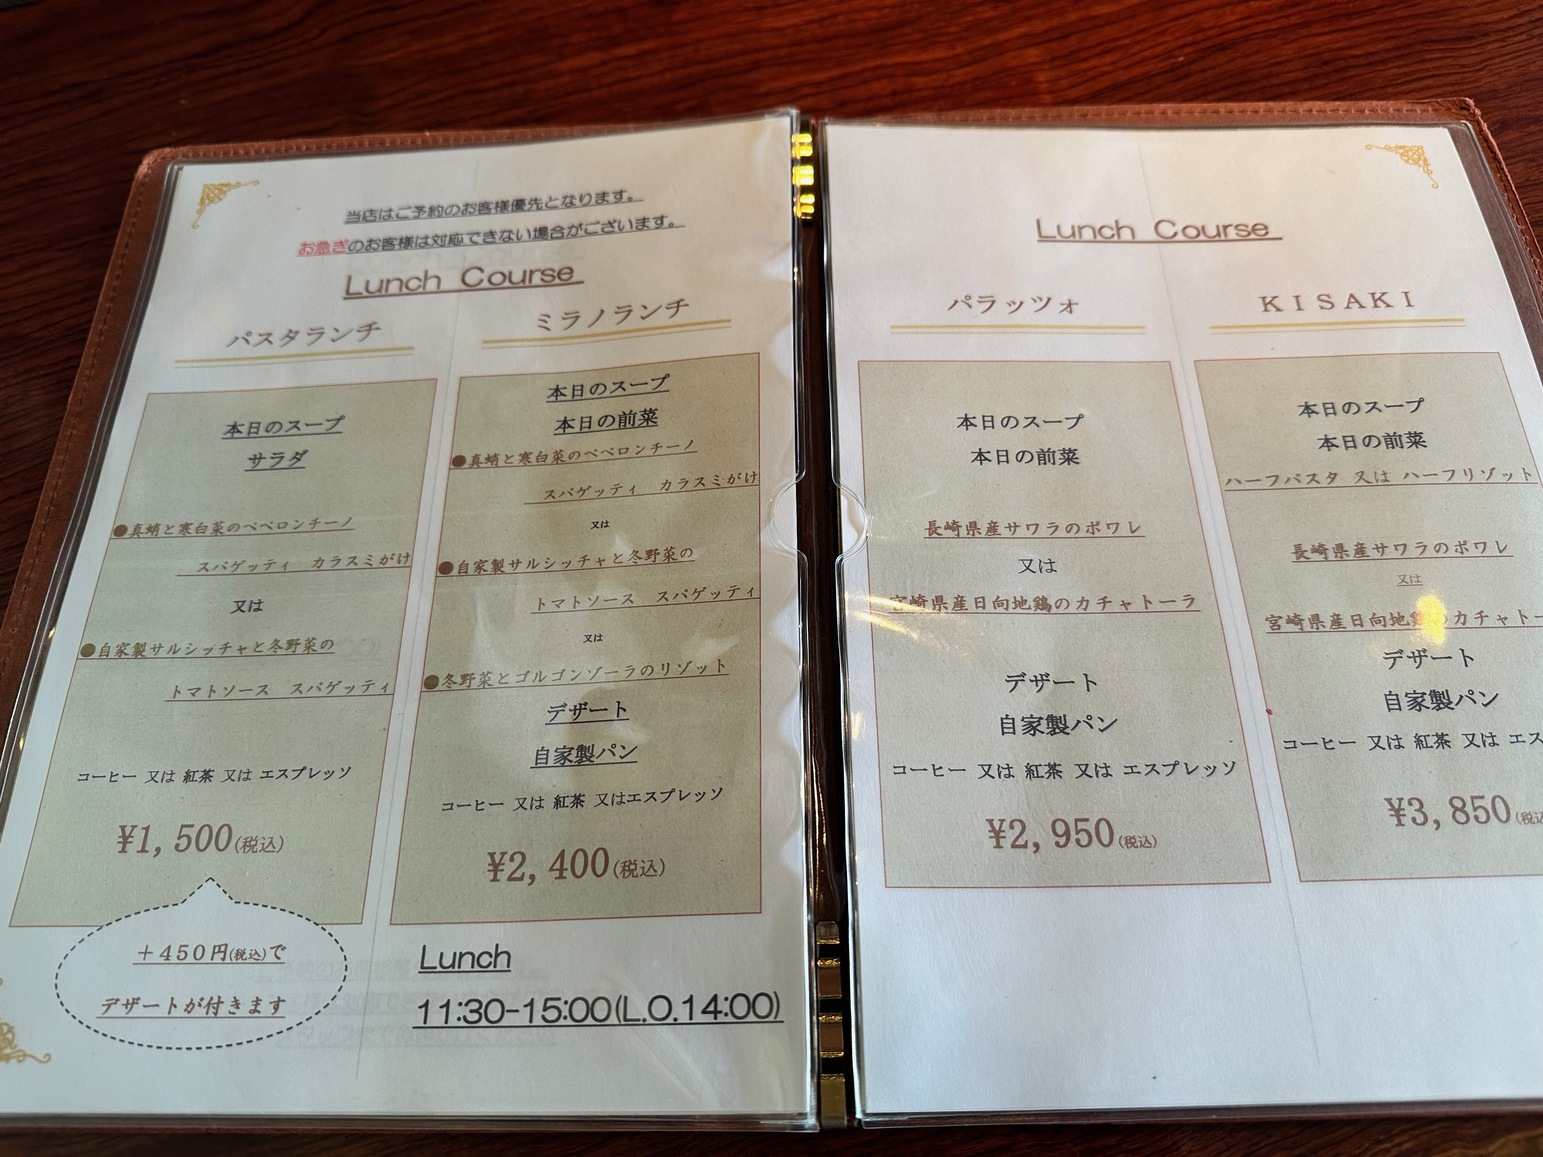 当店はご予約のお客様優先となります。
お急ぎのお客様は対応できない場合がございます。
Lunch Course
パスタランチ
本日のスープ
サラダ
●真蛸と寒白菜のペペロンチーノ
スパゲッティ　カラスミがけ
又は
●自家製サルシッチャと冬野菜の
トマトソース　スパゲッティ
コーヒー 又は 紅茶 又は エスプレッソ
¥1,500(税込)
+450円(税込)で
デザートが付きます
ミラノランチ
本日のスープ
本日の前菜
●真蛸と寒白菜のペペロンチーノ
スパゲッティ　カラスミがけ
又は
●自家製サルシッチャと冬野菜の
トマトソース　スパゲッティ
又は
●冬野菜とゴルゴンゾーラのリゾット
デザート
自家製パン
コーヒー 又は 紅茶 又はエスプレッソ
¥2,400(税込)
Lunch
11:30-15:00(L.O.14:00)
Lunch Course
パラッツォ
本日のスープ
本日の前菜
長崎県産サワラのポワレ
又は
宮崎県産日向地鶏のカチャトーラ
デザート
自家製パン
コーヒー 又は 紅茶 又は エスプレッソ
¥2,950(税込)
KISAKI
本日のスープ
本日の前菜
ハーフパスタ 又は ハーフリゾット
長崎県産サワラのポワレ
又は
宮崎県産日向地鶏のカチャトー
デザート
自家製パン
コーヒー 又は 紅茶 又は エス
¥3,850(税込